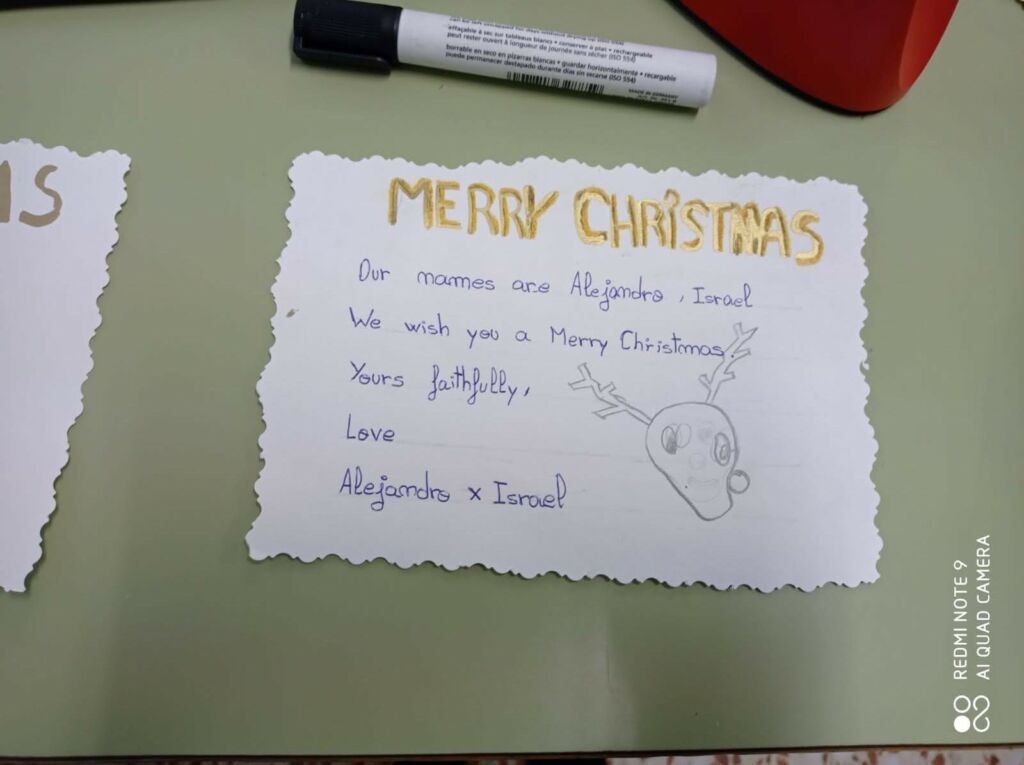 effaçable à sec sur tableaux blancs • conserver à plat • rechargeable
peut rester ouvert à longueur de journée sans sécher (ISO 554)
borrable en seco en pizarras blancas • guardar horizontalmente • recargable
puede permanecer destapado durante días sin secarse (ISO 554)
MADE IN GERMANY
AS
MERRY CHRISTMAS
Our names are Alejandro, Israel
We wish you a Merry Christmas.
Yours faithfully,
Love
Alejandro x Israel
REDMI NOTE 9
AI QUAD CAMERA